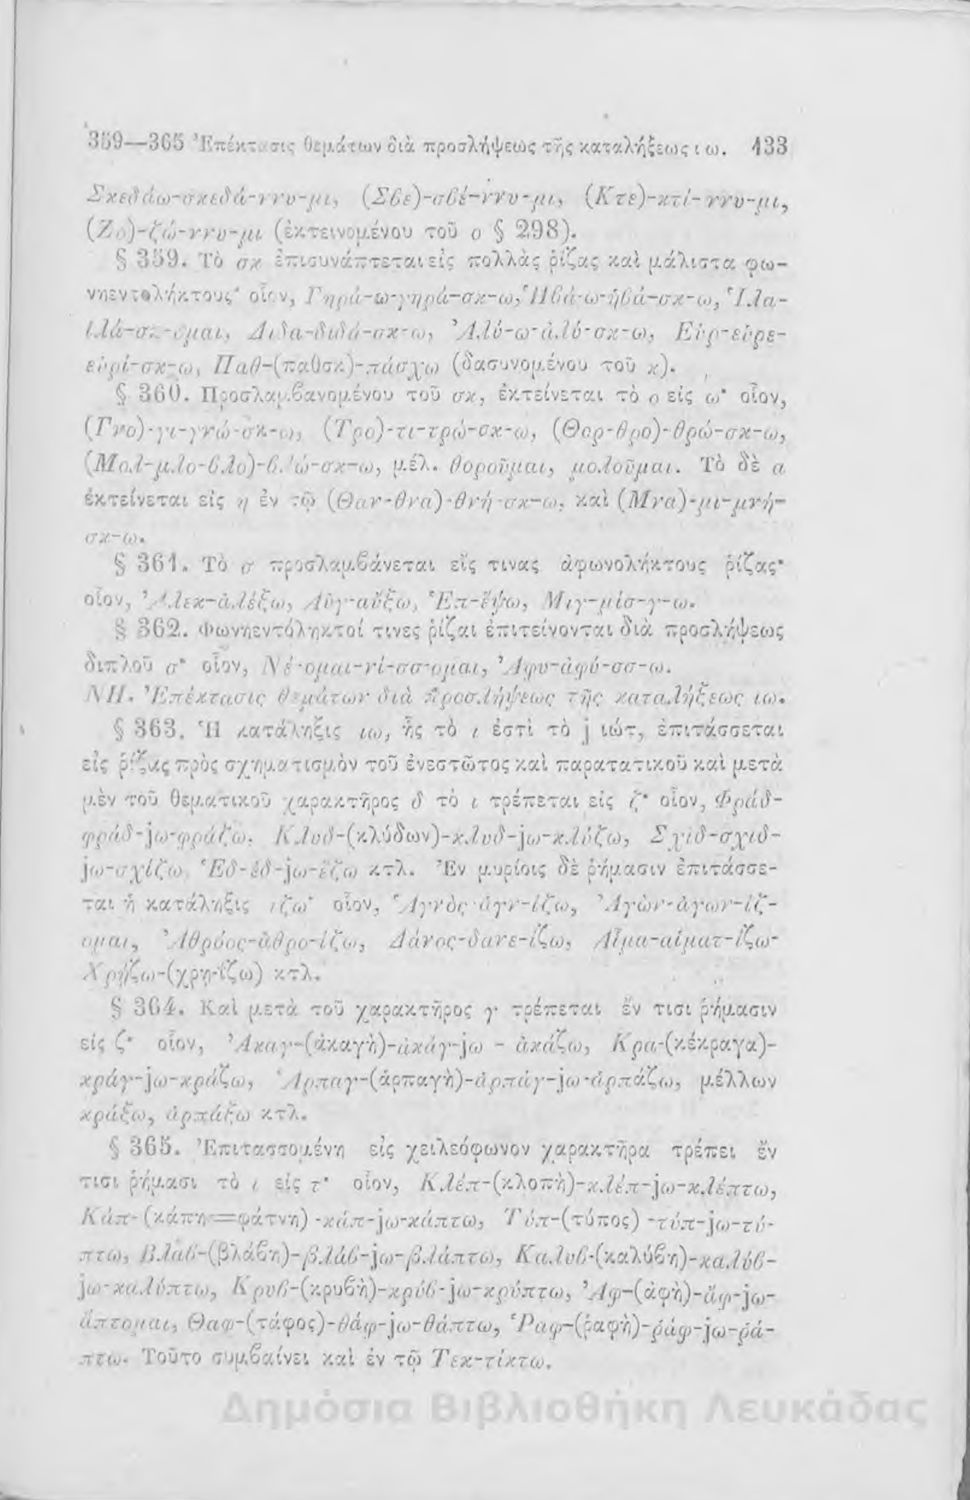 359—365 Ἐπέκτασις θεμάτων διὰ προσλήψεως τῆς καταλήξεως ι ω. 133
Σκεδάω-σκεδά-ννυ-μι, (Σβε)-σβέ-ννυ-μι, (Κτε)-κτί-ννυ-μι,
(Ζο)-ζώ-ννυ-μι (ἐκτεινομένου τοῦ ο § 298).
§ 359. Τὸ σκ ἐπισυνάπτεται εἰς πολλὰς ῥίζας καὶ μάλιστα φω-
νηεντολήκτους· οἷον, Γηρά-ω-γηρά-σκ-ω, Ἡβά-ω-ἡβά-σκ-ω, Ἱλα-
ἱλά-σκ-ομαι, Διδα-διδά-σκ-ω, Ἁλύ-ω-ἀλύ-σκ-ω, Εὑρ-εὑρε-
εὑρί-σκ-ω, Παθ-(παθσκ)-πάσχω (δασυνομένου τοῦ κ).
§ 360. Προσλαμβανομένου τοῦ σκ, ἐκτείνεται τὸ ο εἰς ω· οἷον,
(Γνο)-γι-γνώ-σκ-ω, (Τρο)-τι-τρώ-σκ-ω, (Θορ-θρο)-θρώ-σκ-ω,
(Μολ-μλο-βλο)-βλώ-σκ-ω, μέλ. θοροῦμαι, μολοῦμαι. Τὸ δὲ α
ἐκτείνεται εἰς η ἐν τῷ (Θαν-θνα)-θνή-σκ-ω, καὶ (Μνα)-μι-μνή-
σκ-ω.
§ 361. Τὸ σ προσλαμβάνεται εἴς τινας ἀφωνολήκτους ῥίζας·
οἷον, Ἀλεκ-ἀλέξω, Αὐγ-αὔξω, Ἑπ-ἕψω, Μιγ-μίσ-γ-ω.
§ 362. Φωνηεντόληκτοί τινες ῥίζαι ἐπιτείνονται διὰ προσλήψεως
διπλοῦ σ· οἷον, Νέ-ομαι-νί-σσ-ομαι, Ἀφυ-ἀφύ-σσ-ω.
VII. Ἐπέκτασις θεμάτων διὰ προσλήψεως τῆς καταλήξεως ιω.
§ 363. Ἡ κατάληξις ιω, ἧς τὸ ι ἐστὶ τὸ j ἰώτ, ἐπιτάσσεται
εἰς ῥίζας πρὸς σχηματισμὸν τοῦ ἐνεστῶτος καὶ παρατατικοῦ καὶ μετὰ
μὲν τοῦ θεματικοῦ χαρακτῆρος δ τὸ ι τρέπεται εἰς ζ· οἷον, Φράδ-
φράδ-jω-φράζω, Κλυδ-(κλύδων)-κλυδ-jω-κλύζω, Σχιδ-σχιδ-
jω-σχίζω, Ἑδ-ἑδ-jω-ἕζω κτλ. Ἐν μυρίοις δὲ ῥήμασιν ἐπιτάσσε-
ται ἡ κατάληξις ιζω· οἷον, Ἁγνὸς-ἁγν-ίζω, Ἀγὼν-ἀγων-ίζ-
ομαι, Ἀθρόος-ἀθρο-ίζω, Δάνος-δανε-ίζω, Αἷμα-αἱματ-ίζω-
Χρῄζω-(χρη-ΐζω) κτλ.
§ 364. Καὶ μετὰ τοῦ χαρακτῆρος γ τρέπεται ἔν τισι ῥήμασιν
εἰς ζ· οἷον, Ἀκαγ-(ἀκαγὴ)-ἀκάγ-jω - ἀκάζω, Κρα-(κέκραγα)-
κράγ-jω-κράζω, Ἁρπαγ-(ἁρπαγὴ)-ἁρπάγ-jω-ἁρπάζω, μέλλων
κράξω, ἁρπάξω κτλ.
§ 365. Ἐπιτασσομένη εἰς χειλεόφωνον χαρακτῆρα τρέπει ἔν
τισι ῥήμασι τὸ ι εἰς τ· οἷον, Κλέπ-(κλοπὴ)-κλέπ-jω-κλέπτω,
Κάπ-(κάπη=φάτνη)-κάπ-jω-κάπτω, Τύπ-(τύπος)-τύπ-jω-τύ-
πτω, Βλάβ-(βλάβη)-βλάβ-jω-βλάπτω, Καλυβ-(καλύβη)-καλύβ-
jω-καλύπτω, Κρυβ-(κρυβὴ)-κρύβ-jω-κρύπτω, Ἁφ-(ἁφὴ)-ἅφ-jω-
ἅπτομαι, Θαφ-(τάφος)-θάφ-jω-θάπτω, Ῥαφ-(ῥαφὴ)-ῥάφ-jω-ῥά-
πτω. Τοῦτο συμβαίνει καὶ ἐν τῷ Τεκ-τίκτω.
Δημόσια Βιβλιοθήκη Λευκάδας